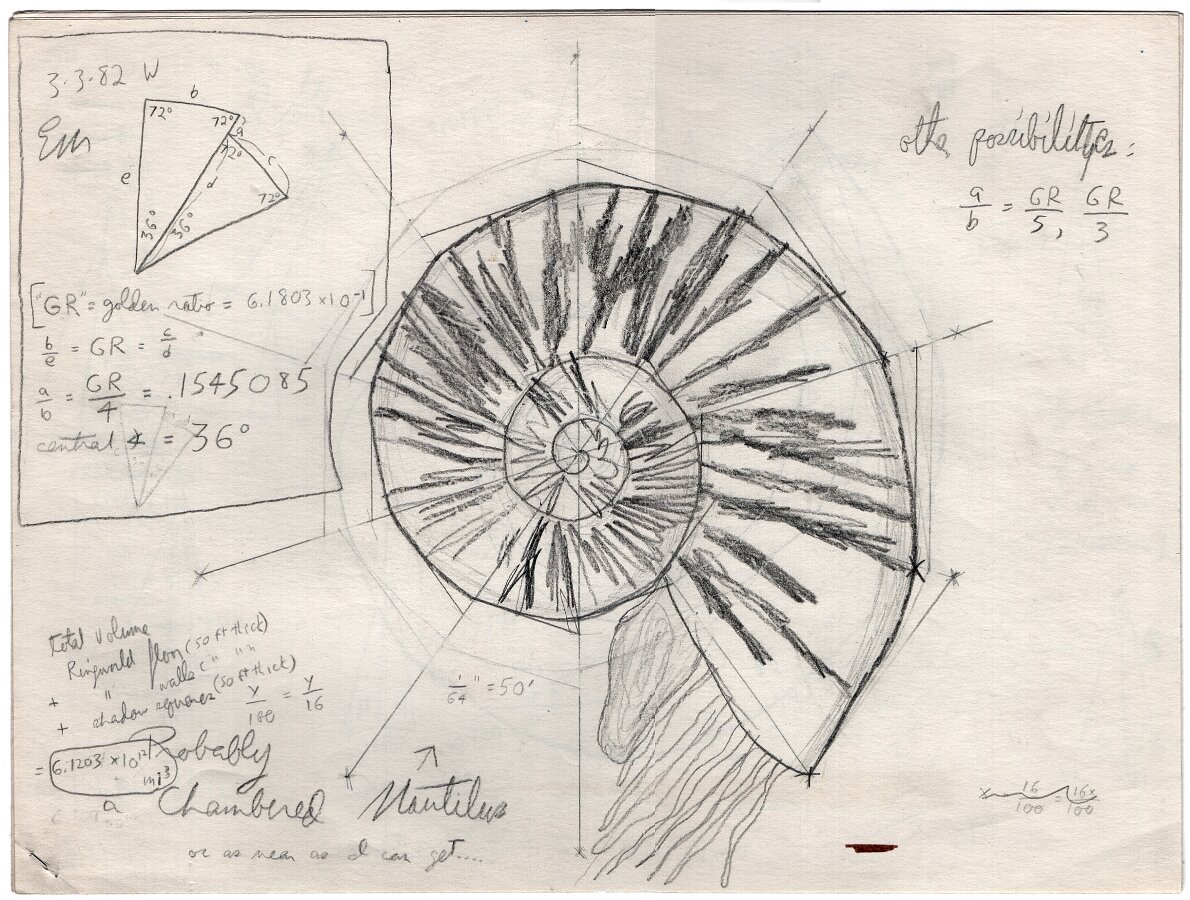 3·3·82 W
b
72° 72°
a
72°
c
e
d
72°
36° 36°
["GR" = golden ratio = 6.1803 x10⁻¹]
b/e = GR = c/d
a/b = GR/4 = .1545085
central ∡ = 36°
other possibilities:
a/b = GR/5, GR/3
total volume
Ringworld floor (50 ft thick)
+ " walls (" "")
+ shadow squares (50 ft thick)
y/100 = y/16
= 6.1203 x10¹² mi³
1/64" = 50'
Probably
a Chambered Nautilus
or as near as I can get....
16/100 = 16x/100